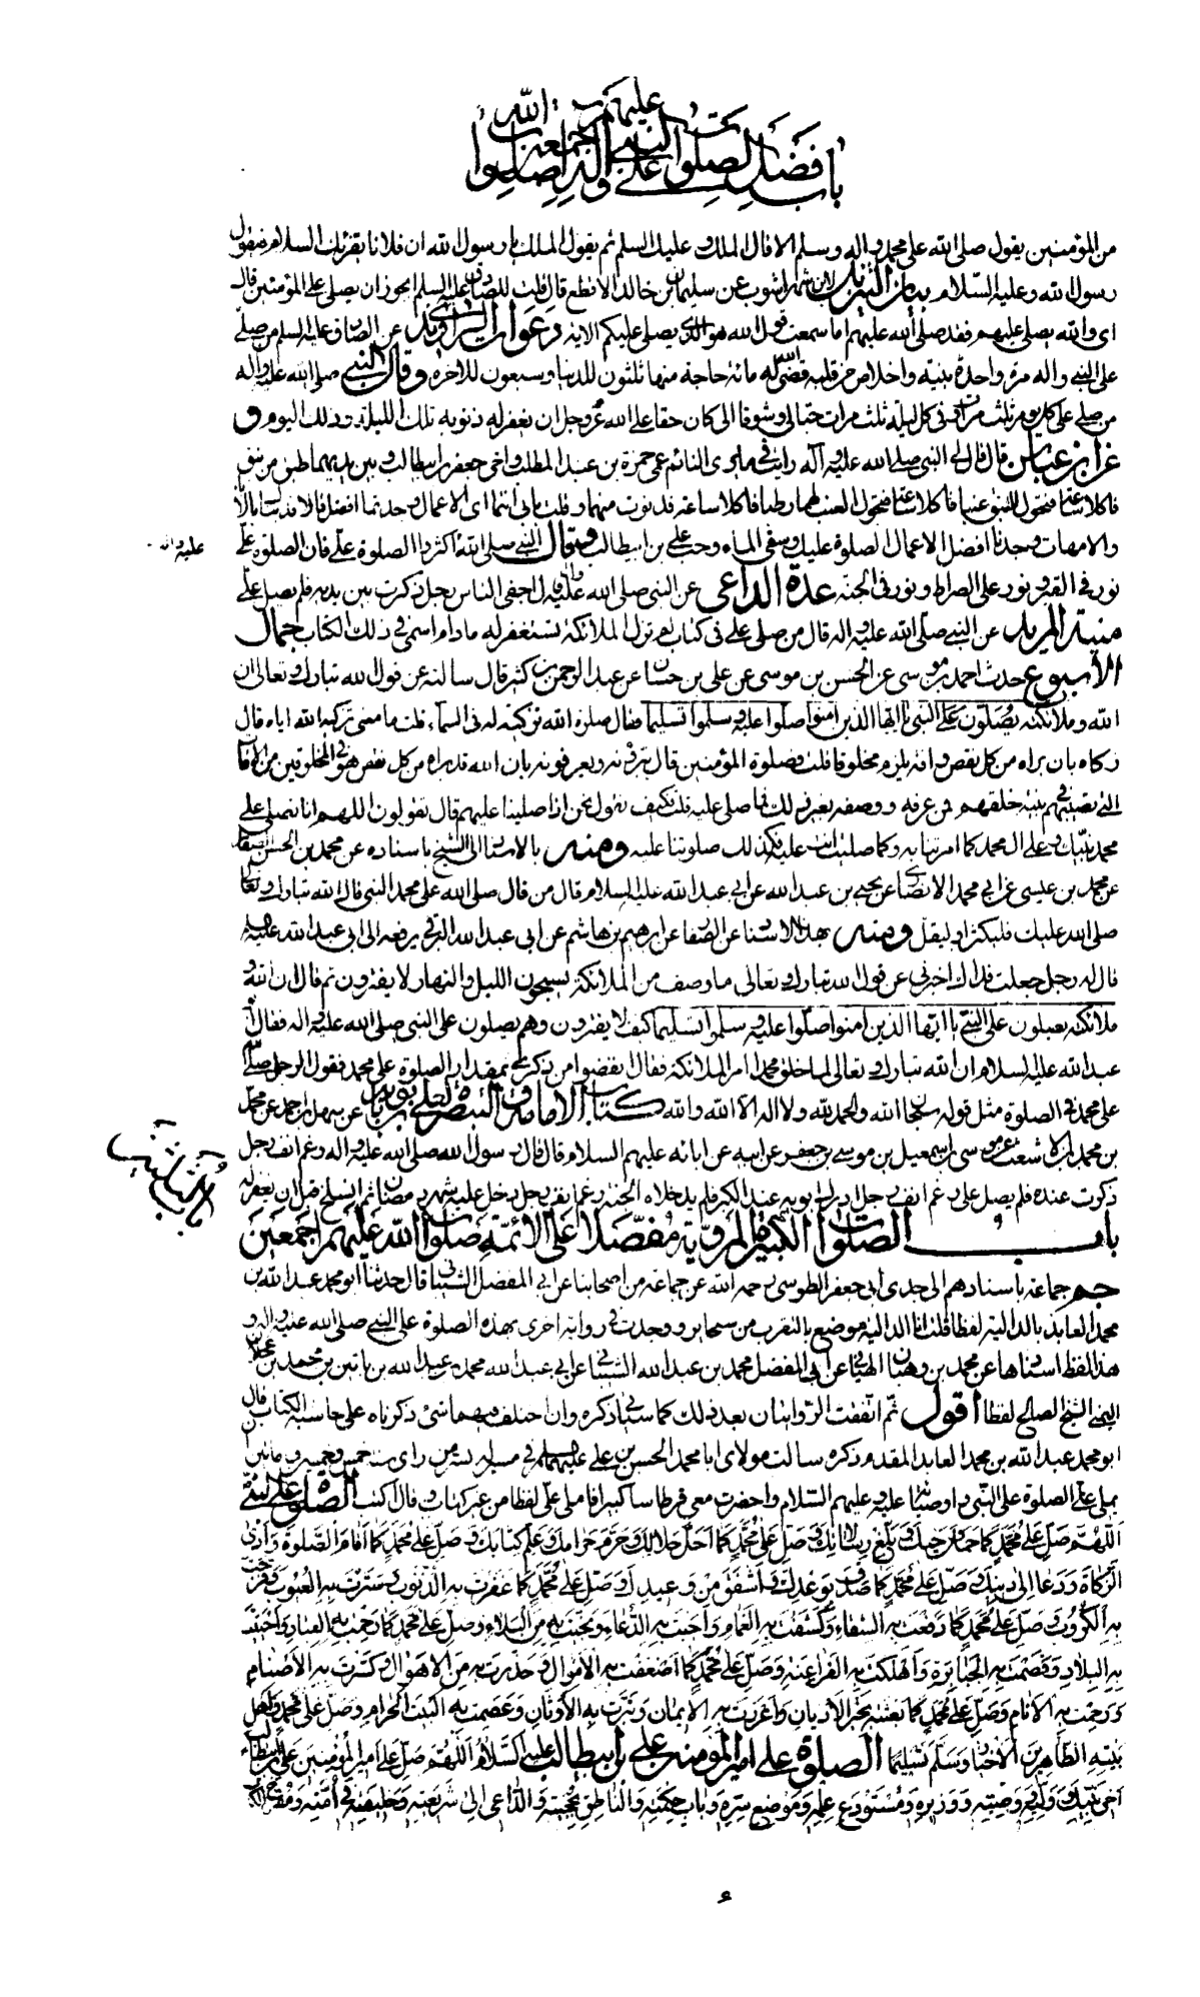 باب فضل الصلوات على النبي وآله صلوات الله عليهم اجمعين
من المؤمنين يقول صلى الله على محمد واله وسلم الا قال الملك وعليك السلم ثم يقول الملك يا رسول الله ان فلانا يقرئك السلام فيقول
رسول الله وعليه السلام بيان التنزيل لابن شهراشوب عن سليمان بن خالد الاقطع قال قلت للصادق عليه السلم ايجوز ان يصلى على المؤمنين قال
اى والله يصلى عليهم فقد صلى الله عليهم اما سمعت قول الله هو الذى يصلى عليكم الاية دعوات الراوندى عن الصادق عليه السلم من صلى
على النبى واله مرة واحدة بنية واخلاص من قلبه قضى الله له مائة حاجة منها ثلثون للدنيا وسبعون للاخرة وقال النبى صلى الله عليه واله
من صلى على كل يوم ثلث مرات وفى كل ليلة ثلث مرات حبا لى وشوقا الى كان حقا على الله عز وجل ان يغفر له ذنوبه تلك الليلة وذلك اليوم و
عن ابن عباس قال قال لى النبى صلى الله عليه وآله رايت فى ما يرى النائم عمى حمزة بن عبد المطلب واخى جعفر بن ابيطالب وبين يديهما طبق من نبق
فاكلا ساعة فتحول النبق عنبا فاكلا ساعة فتحول العنب لهما رطبا فاكلا ساعة فدنوت منهما وقلت بابى انتما اى الاعمال وجدتما افضل قالا فديناك بالاباء
والامهات وجدنا افضل الاعمال الصلوة عليك وسقى الماء وحب على بن ابيطالب وقال النبى صلى الله اكثروا الصلوة على فان الصلوة على
عليه واله
نور فى القبر ونور على الصراط ونور فى الجنة عدة الداعى عن النبى صلى الله عليه واله قال اجفى الناس رجل ذكرت بين يديه فلم يصل على
منية المريد عن النبى صلى الله عليه واله قال من صلى على فى كتاب لم تزل الملائكة تستغفر له ما دام اسمى فى ذلك الكتاب جمال
الأسبوع حدث احمد بن موسى عن الحسن بن موسى عن على بن حسان عن عبد الرحمن بن كثير قال سالته عن قول الله تبارك وتعالى ان
الله وملائكته يصلون على النبى يا ايها الذين امنوا صلوا عليه وسلموا تسليما فقال صلوة الله تزكية له فى السماء قلت ما معنى تزكية الله اياه قال
زكاه بان براه من كل نقص وافة يلزم مخلوقا قلت فصلوة المؤمنين قال يبرؤنه ويعرفونه بان الله قد براه من كل نقص هو فى المخلوقين من الافات
التى تصيبهم فى بنية خلقهم فمن عرفه ووصفه بغير ذلك فما صلى عليه قلت فكيف نقول نحن اذا صلينا عليهم قال تقولون اللهم انا نصلى على
محمد نبيك وعلى ال محمد كما امرتنا به وكما صليت انت عليه فكذلك صلوتنا عليه ومنه بالاسناد الى الشيخ باسناده عن محمد بن الحسن الصفار
عن محمد بن عيسى عن ابى محمد الانصارى عن يحيى بن عبد الله عن ابى عبد الله عليه السلام قال من قال صلى الله على محمد النبى قال الله تبارك وتعالى
صلى الله عليك فليكثر او ليقل ومنه بهذا الاسناد عن الصفار عن ابرهيم بن هاشم عن ابى عبد الله البرقى يرفعه الى ابى عبد الله عليه السلم
قال له رجل جعلت فداك اخبرنى عن قول الله تبارك وتعالى ما وصف من الملائكة يسبحون الليل والنهار لا يفترون ثم قال ان الله و
ملائكته يصلون على النبى يا ايها الذين امنوا صلوا عليه وسلموا تسليما كيف لا يفترون وهم يصلون على النبى صلى الله عليه واله فقال ابو
عبد الله عليه السلام ان الله تبارك وتعالى لما خلق محمدا امر الملائكة فقال انقصوا من ذكرى بمقدار الصلوة على محمد فقول الرجل صلى الله
على محمد فى الصلوة مثل قوله سبحان الله والحمد لله ولا اله الا الله والله كتاب الامامة والتبصرة لعلى بن بابويه عن سهل بن احمد عن محمد
بن محمد بن الاشعث عن موسى بن اسمعيل بن موسى بن جعفر عن ابيه عن ابائه عليهم السلام قال قال رسول الله صلى الله عليه واله رغم انف رجل
ذكرت عنده فلم يصل على رغم انف رجل ادرك ابويه عند الكبر فلم يدخلاه الجنة رغم انف رجل دخل عليه شهر رمضان ثم انسلخ قبل ان يغفر له
باب الصلوات الكبيرة المروية مفصلا على الائمة صلوات الله عليهم اجمعين
جم جماعة باسنادهم الى جدى ابى جعفر الطوسى رحمه الله عن جماعة من اصحابنا عن ابى المفضل الشيبانى قال حدثنا ابو محمد عبد الله بن
محمد العابد بالدالية لفظا قلت انا الدالية موضع بالقرب من سنجار ووجدت فى رواية اخرى بهذه الصلوة على النبى صلى الله عليه واله و
هذا لفظ اسنادها عن محمد بن وهبان الهنائى عن ابى المفضل محمد بن عبد الله الشيبانى عن ابى عبد الله محمد بن عبد الله بن باتين بن محمد بن عجلان
اليمنى الشيخ الصالح لفظا اقول ثم اتفقت الروايتان بعد ذلك كما سياتى ذكره وان اختلف فيهما شئ ذكرناه على حاشية الكتاب قال
ابو محمد عبد الله بن محمد العابد المقدم ذكره سالت مولاى ابا محمد الحسن بن على عليهما السلم فى مسيرله بسر من راى سنة خمس وخمسين ومائتين
يملى على الصلوة على النبى واوصيائه عليه وعليهم السلام واحضرت معى قرطاسا كبيرا فاملى على لفظا من غير كتاب وقال اكتب الصلوة على النبى
اللهم صل على محمد كما حمل وحيك وبلغ رسالاتك وصل على محمد كما احل حلالك وحرم حرامك وعلم كتابك وصل على محمد كما اقام الصلوة وادى
الزكاة ودعا الى دينك وصل على محمد كما صدق بوعدك واشفق من وعيدك وصل على محمد كما غفرت به الذنوب وسترت به العيوب وفرجت
به الكروب وصل على محمد كما دفعت به الشقاء وكشفت به الغماء واجبت به الدعاء ونجيت به من البلاء وصل على محمد كما رحمت به العباد واحييت
به البلاد وقصمت به الجبابرة واهلكت به الفراعنة وصل على محمد كما اضعفت به الاموال وحذرت به من الاهوال وكسرت به الاصنام
ورحمت به الانام وصل على محمد كما بعثته بخير الاديان واعززت به الايمان وتبرت به الاوثان وعصمت به البيت الحرام وصل على محمد واهل
بيته الطاهرين الاخيار وسلم تسليما الصلوة على امير المؤمنين على بن ابيطالب عليه السلام اللهم صل على امير المؤمنين على بن ابيطالب
اخى نبيك ووليه ووصيه ووزيره ومستودع علمه وموضع سره وباب حكمته والناطق بحجته والداعى الى شريعته وخليفته فى امته ومفرج الكرب